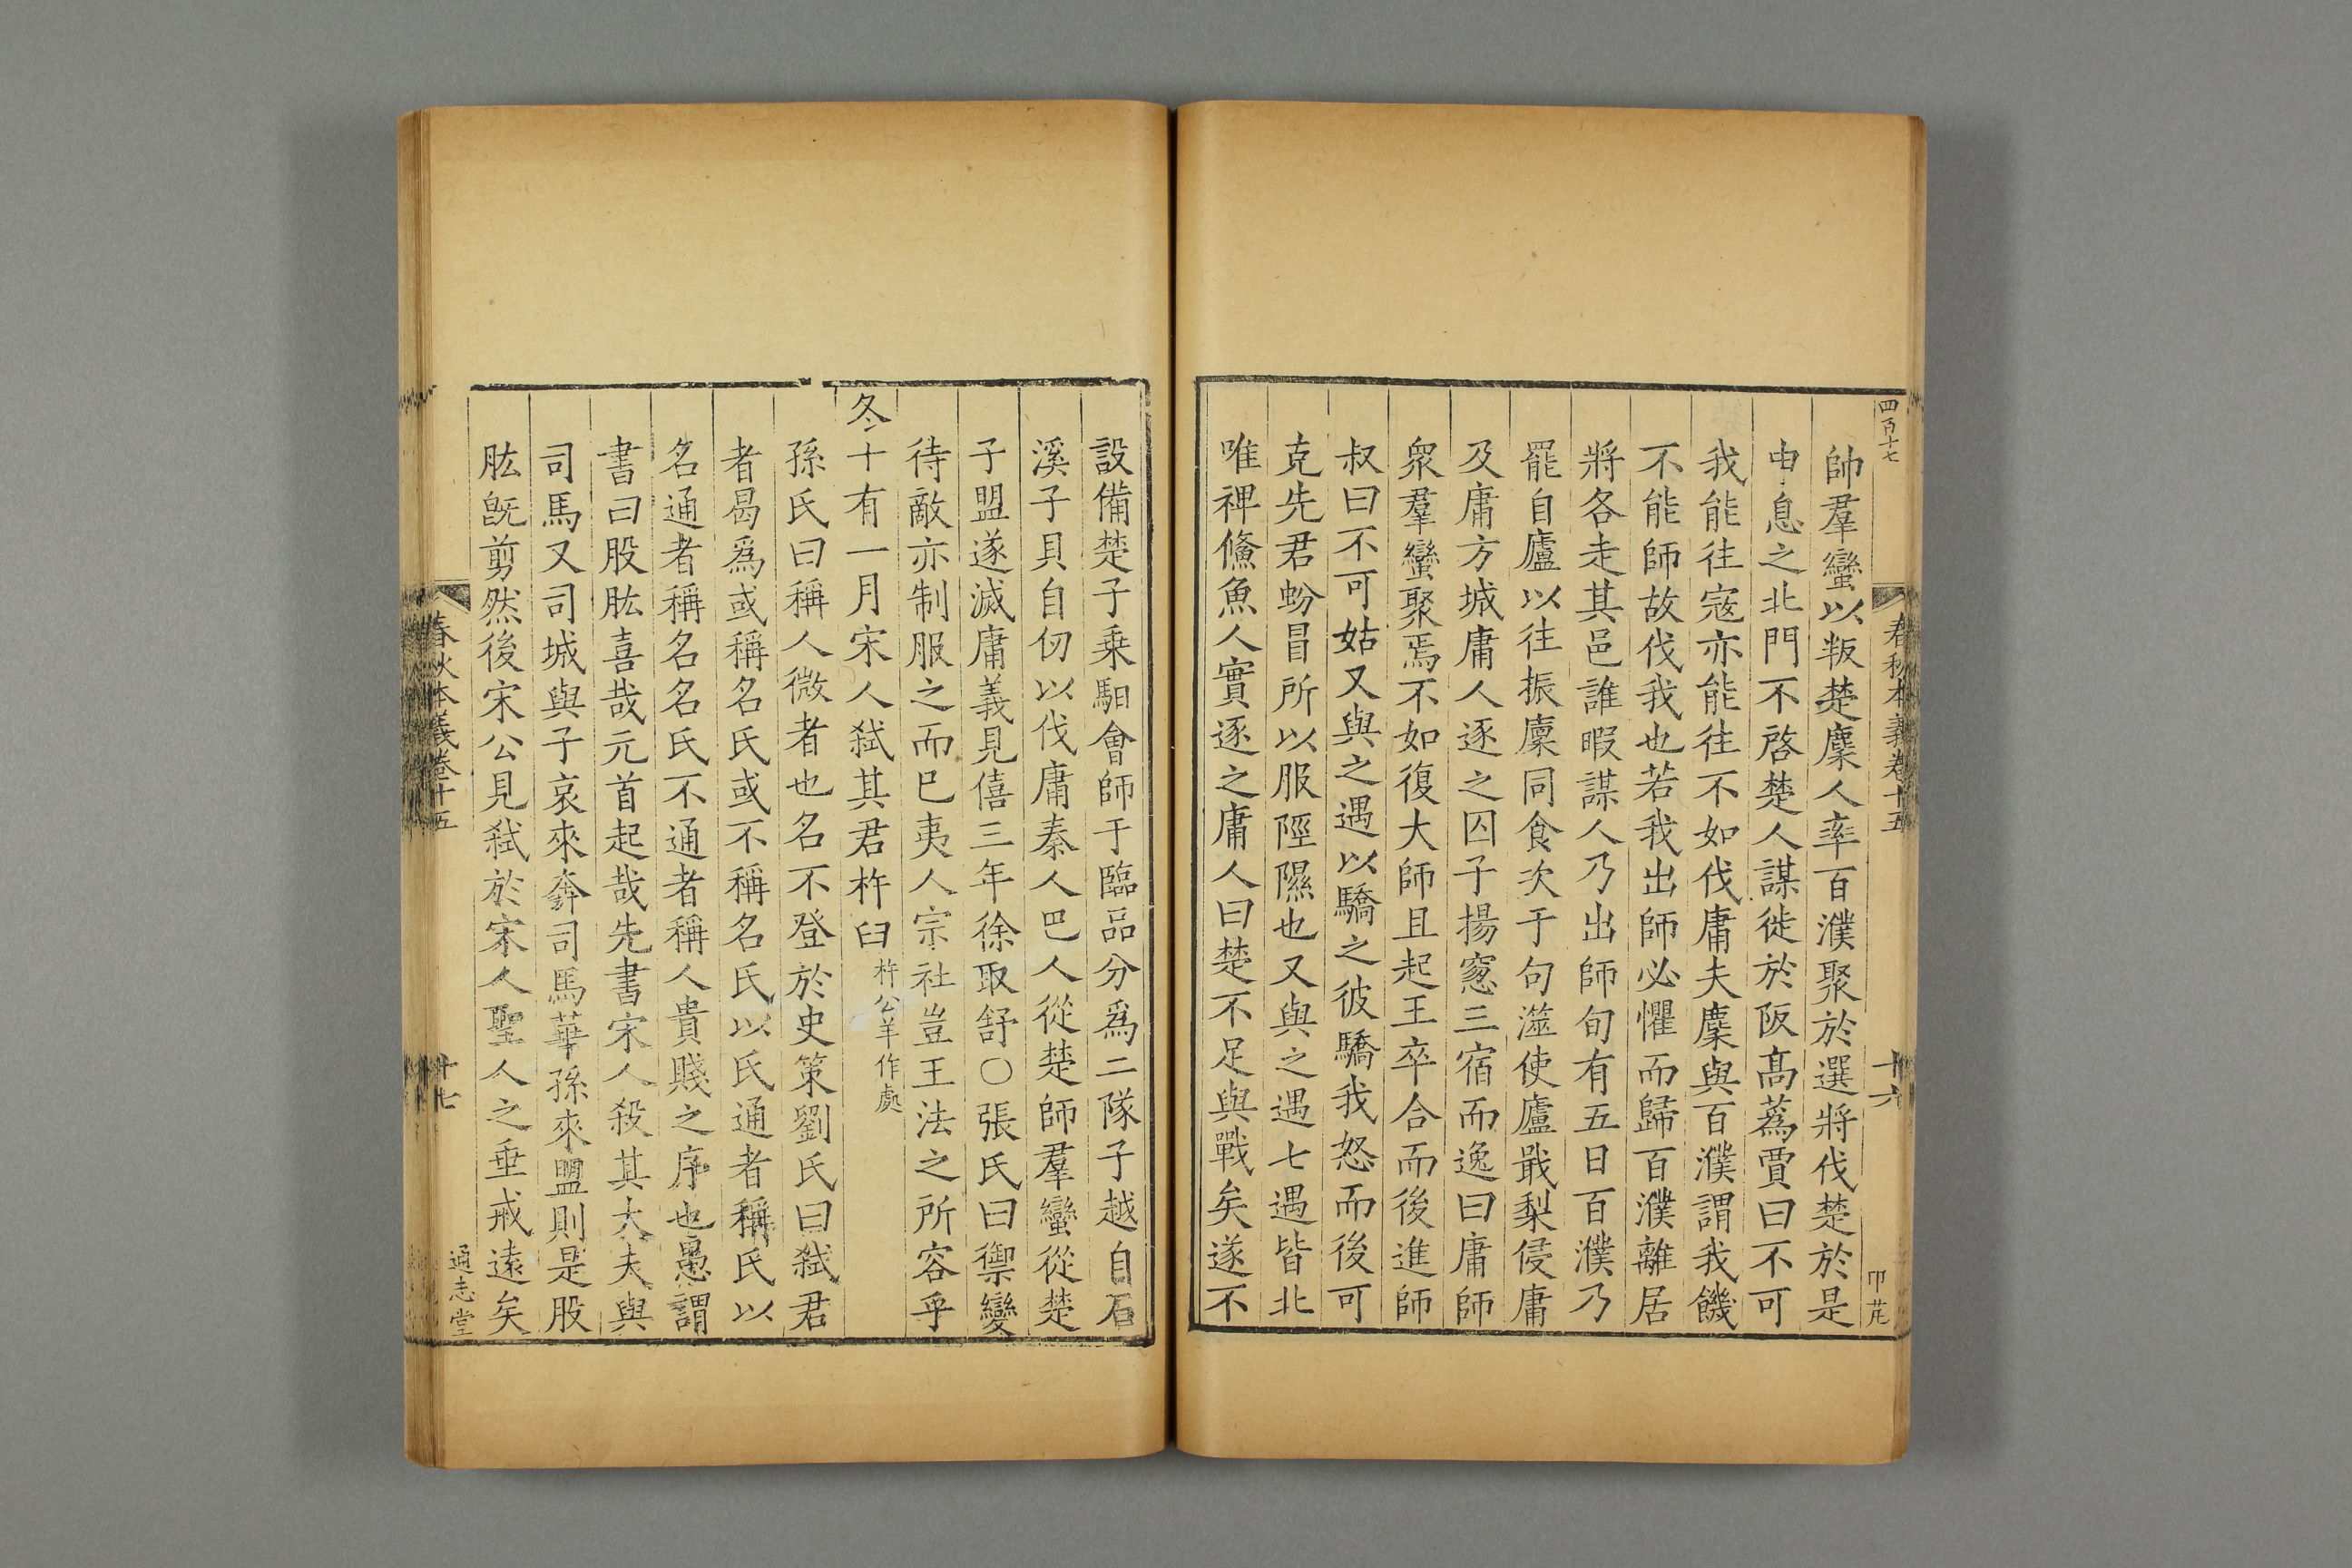 四百十七
春秋本義卷十五
十六
帥羣蠻以叛楚麇人率百濮聚於選將伐楚於是
申息之北門不啓楚人謀徙於阪髙蒍賈曰不可
我能往寇亦能往不如伐庸夫麇與百濮謂我饑
不能師故伐我也若我出師必懼而歸百濮離居
將各走其邑誰暇謀人乃出師旬有五日百濮乃
罷自廬以往振廩同食次于句澨使廬戢梨侵庸
及庸方城庸人逐之囚子揚窻三宿而逸曰庸師
衆羣蠻聚焉不如復大師且起王卒合而後進師
叔曰不可姑又與之遇以驕之彼驕我怒而後可
克先君蚡冒所以服陘隰也又與之遇七遇皆北
唯裨鯈魚人實逐之庸人曰楚不足與戰矣遂不
設備楚子乗馹會師于臨品分爲二隊子越自石
溪子貝自仞以伐庸秦人巴人從楚師羣蠻從楚
子盟遂滅庸義見僖三年徐取舒○張氏曰禦變
待敵亦制服之而已夷人宗社豈王法之所容乎
冬十有一月宋人弑其君杵臼杵公羊作處
孫氏曰稱人微者也名不登於史策劉氏曰弑君
者曷爲或稱名氏或不稱名氏以氏通者稱氏以
名通者稱名名氏不通者稱人貴賤之序也愚謂
書曰股肱喜哉元首起哉先書宋人殺其大夫與
司馬又司城與子哀來奔司馬華孫來盟則是股
肱旣剪然後宋公見弑於宋人聖人之垂戒遠矣
春秋本義卷十五
十七
通志堂